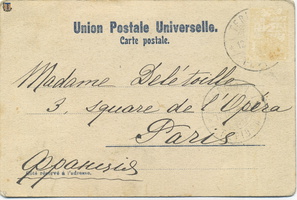 Union Postale Universelle.
Carte postale.
Madame Delétoille
3, square de l'Opéra
Paris
Франція
Côté réservé à l'adresse.